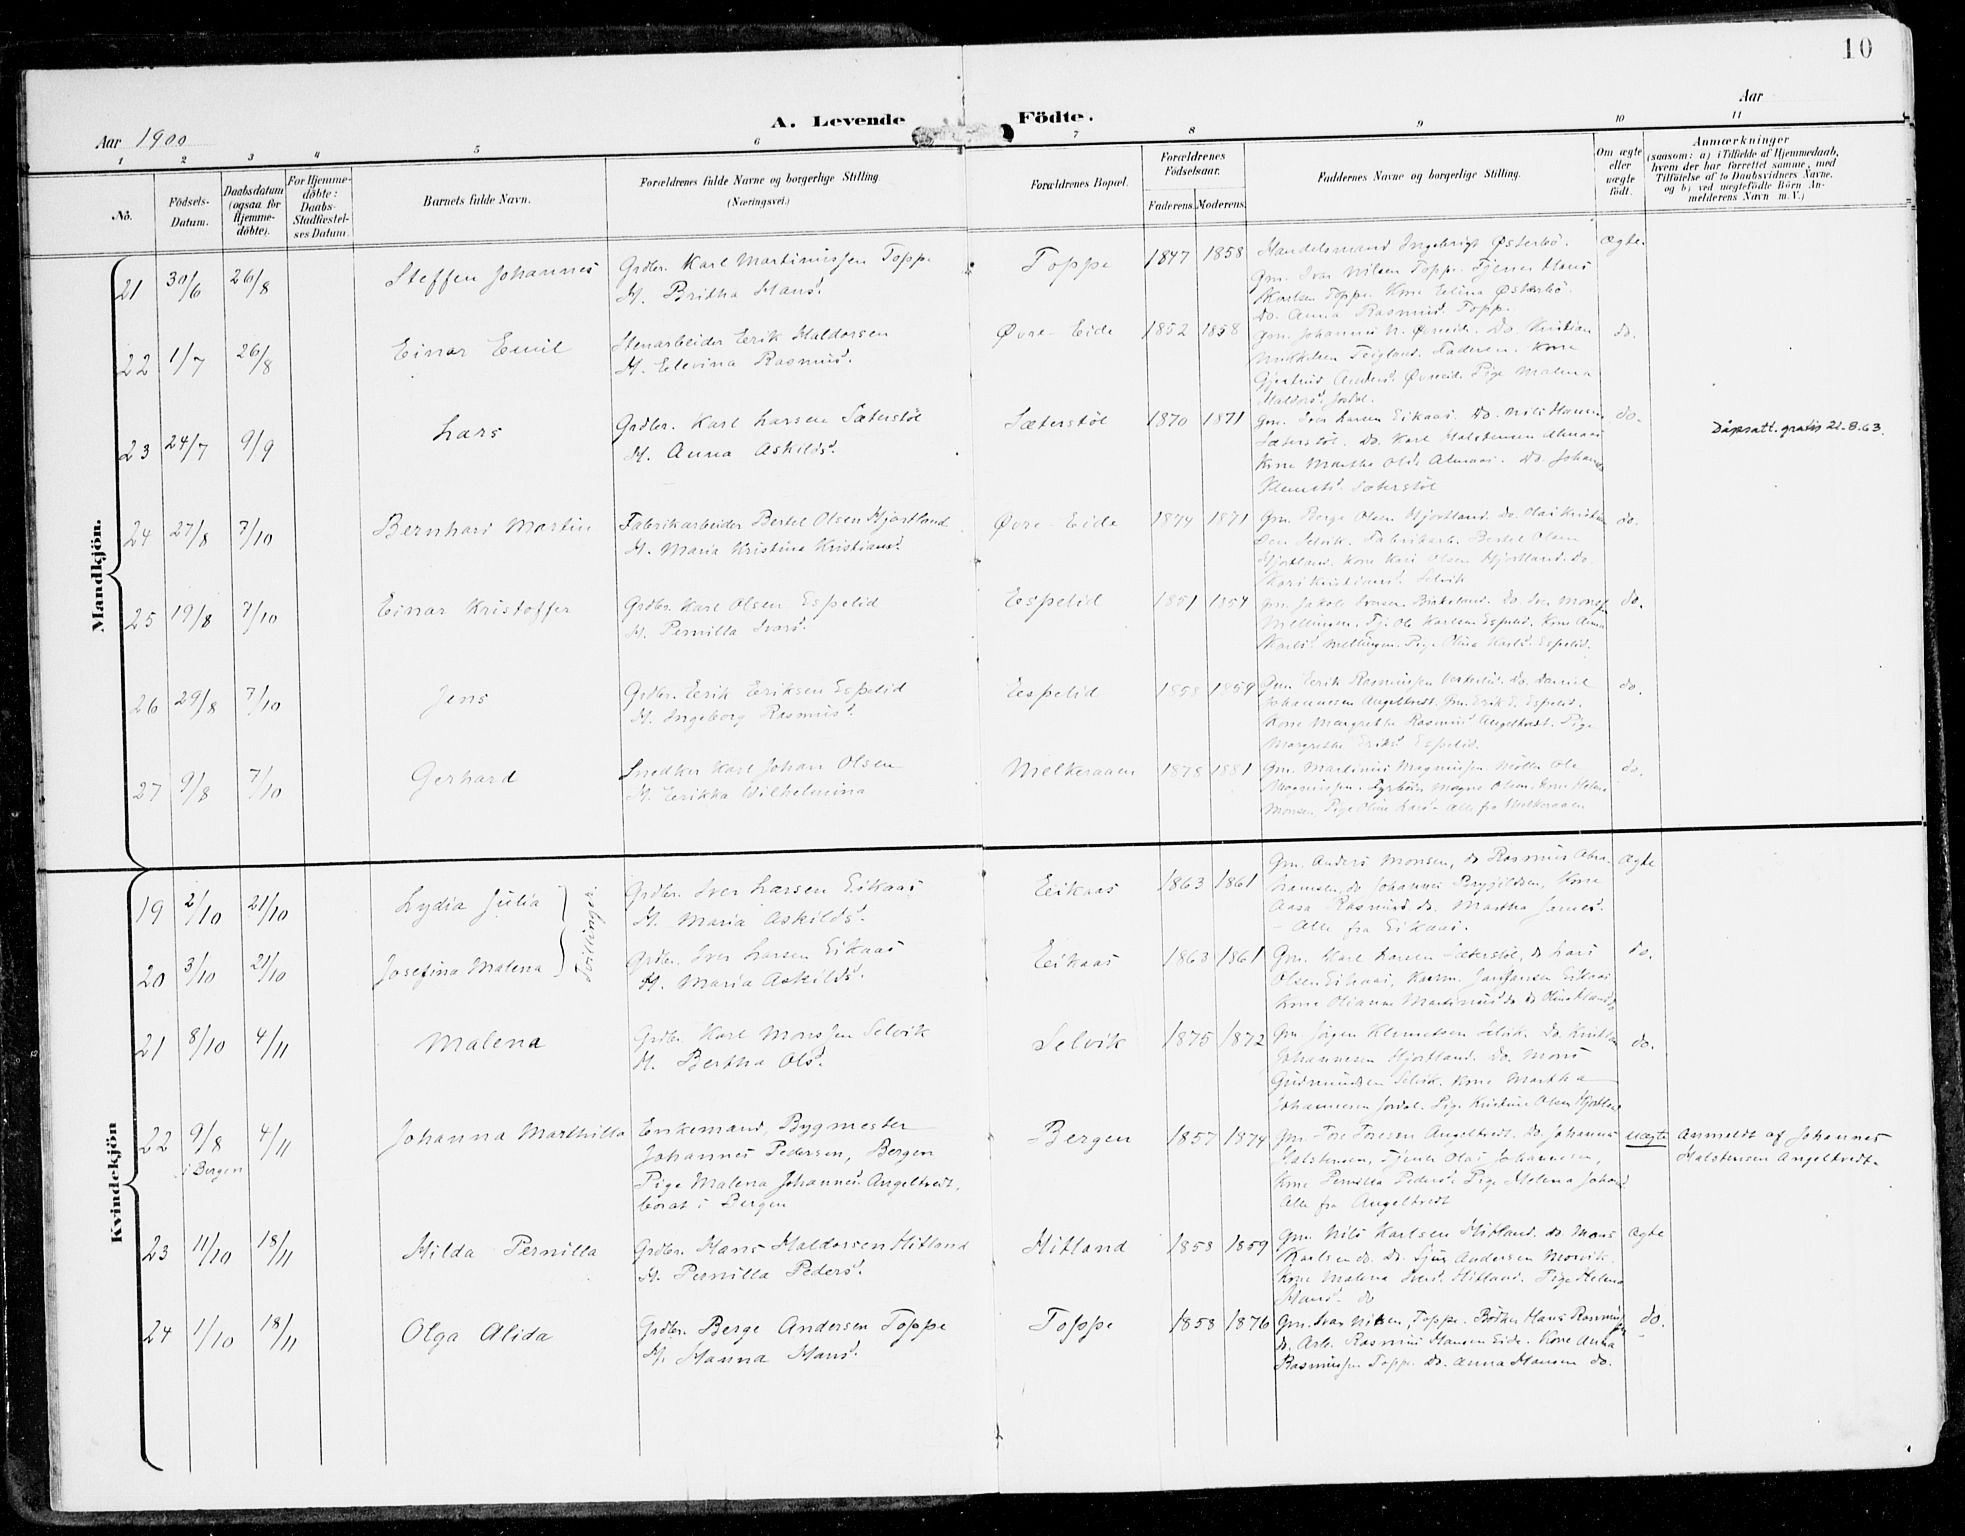 10
A. Levende Födte.
Aar 1900
Aar
1 2 3 4 5 6 7 8 9 10 11
No.
Födsels-Datum.
Daabsdatum (ogsaa for Hjemme-döbte).
For Hjemme-döbte: Daabs-Stadfæstel-ses Datum.
Barnets fulde Navn.
Forældrenes fulde Navne og borgerlige Stilling (Næringsvei.)
Forældrenes Bopæl.
Forældrenes Födselsaar.
Faderens. Moderens.
Faddernes Navne og borgerlige Stilling.
Om ægte eller uægte födt.
Anmærkninger
(saasom: a) i Tilfælde af Hjemmedaab, hvem der har forrettet samme, med Tilföielse af to Daabsvidners Navne, og b) ved uægtefödte Börn An-melderens Navn m. V.)
Mandkjön.
21 30/6 26/8 Steffen Johannes
Grdbr. Karl Martinussen Toppe
H. Britha Hansd.
Toppe 1847 1858
Handelsmand Ingebrigt Østerbö.
Gm. Ivar Nilsen Toppe. Tjener Hans
Karlsen Toppe. Kone Elina Østerbö.
do. Anna Rasmusd. Toppe.
ægte.
22 1/7 26/8 Einar Emil
Stenarbeider Erik Haldorsen
H. Elevina Rasmusd.
Øvre-Eide 1852 1858
Gm. Johannes N. Øvreeide. Do Kristian
Mikkelsen Teigland. Faderen. Kone
Gjertrud Andersd. Øvreeid. Pige Malena
Haldorsd. Jordal.
do.
23 24/7 9/9 Lars
Grdbr. Karl Larsen Sæterstöl
H. Anna Askildsd.
Sæterstöl 1870 1871
Gm. Iver Larsen Eikaas. Do. Nils Hansen
Sæterstöl. do. Karl Halstensen Almaas
Kone Martha Olsd. Almaas. do. Johanna
Klemetsd. Sæterstöl
do.
Dåpsatt. gratis 21.8.63.
24 27/8 7/10 Bernhard Martin
Fabrikarbeider Bertel Olsen Hjortland
H. Maria Kristina Kristiansd.
Øvre-Eide 1874 1871
Gm. Berge Olsen Hjortland. do. Olai Kristian
sen Selvik. Fabrikarb. Bertel Olsen
Hjortland. Kone Kari Olsen Hjortland. do.
Kari Kristiansd. Selvik
do.
25 19/8 7/10 Einar Kristoffer
Grdbr. Karl Olsen Espelid
H. Pernilla Ivarsd.
Espelid 1851 1854
Gm. Jakob Iversen Birkeland. Do Iver Monsen
Mellingen. Tj. Ole Karlsen Espelid. Kone Anna
Karlsd. Mellingen. Pige Olina Karlsd. Espelid.
do.
26 29/8 7/10 Jens
Grdbr. Erik Eriksen Espelid
H. Ingeborg Rasmusd.
Espelid 1858 1859
Gm. Erik Rasmussen. do. Daniel
Johannesen Angeltvedt. Gm. Erik E. Espelid.
Kone Margrethe Rasmusd. Angeltvedt. Pige
Margrethe Eriksd. Espelid.
do.
27 9/8 7/10 Gerhard
Snedker Karl Johan Olsen
H. Erikka Wilhelmina
Melkeraaen 1878 1881
Gm. Martinus Magnussen. Möller Ole
Magnussen. Fyrböder Magne Olsen. Kone Helene
Monsen. Pige Oline Larsd. - Alle fra Melkeraaen
do.
Kvindekjön
19 2/10 21/10 Lydia Julia
Tvillinger.
Grdbr. Iver Larsen Eikaas
H. Maria Askildsd.
Eikaas 1863 1861
Gm. Anders Monsen, do Rasmus Abra-
hamsen, do Johannes Brygjeldsen, Kone
Aasa Rasmusd. do. Martha Jamesd.
- Alle fra Eikaas.
ægte
20 3/10 21/10 Josefina Malena
Grdbr. Iver Larsen Eikaas
H. Maria Askildsd.
Eikaas 1863 1861
Gm. Karl Larsen Sæterstöl, do Lars
Olsen Eikaas, Jan Jansen Eikaas
Kone Olianna Martinusd. do
do.
21 8/10 4/11 Malena
Grdbr. Karl Monssen Selvik
H. Bertha Olsd.
Selvik 1875 1872
Gm. Jörgen Klemetsen Selvik. Do. Kristian
Johannesen Hjortland. Do. Mons
Gudmundsen Selvik. Kone Martha
Johannesen Jordal. Pige Kristine Olsen Hjortland
do.
22 9/8 i Bergen 4/11 Johanna Marthilla
Enkemand, Bygmester
Johannes Pedersen, Bergen
Pige Malena Johannesd. Angeltvedt,
bosat i Bergen
Bergen 1857 1874
Gm. Tore Toresen Angeltvedt. Do. Johannes
Halstensen, Tjener Olai Johannesen,
Kone Pernilla Pedersd. Pige Helena Johansd.
Alle fra Angeltvedt
uægte
Anmeldt af Johannes
Halstensen Angeltvedt.
23 11/10 18/11 Hilda Pernilla
Grdbr. Hans Haldorsen Hitland
H. Pernilla Pedersd.
Hitland 1858 1859
Gm. Nils Karlsen Hitland. do Mons
Karlsen do. Do. Sjur Andersen Morvik.
Kone Malena Iversd. Hitland. Pige Helena
Hansd. do
ægte
24 1/10 18/11 Olga Alida
Grdbr. Berge Andersen Toppe
H. Hanna Hansd.
Toppe 1858 1876
Gm. Ivar Nilsen, Toppe. Bödker Hans Rasmussen
do. Arb. Rasmus Hansen Eide. Kone Anna
Rasmussen Toppe. do. Anna Hansen do.
do.